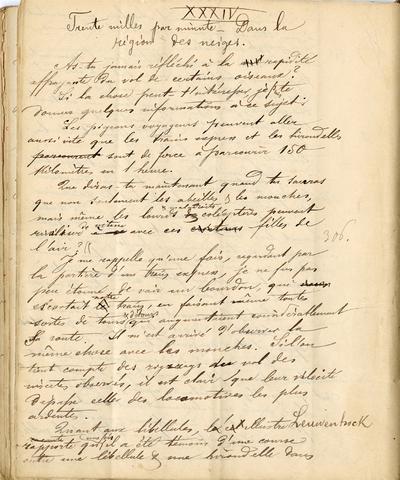 XXXIV.
Trente milles par minute — Dans la
région des neiges.
As-tu jamais réfléchi à la rapidité
effrayante du vol de certains oiseaux?
Si la chose peut t'intéresser, je te
donne quelques informations à ce sujet:
Les pigeons voyageurs peuvent aller
aussi vite que les trains express et les hirondelles
sont de force à parcourir 150
kilomètres en 1 heure.
Que diras-tu maintenant quand tu sauras
que non seulement les abeilles & les mouches,
mais même les lourds coléoptères peuvent
avec ces filles de
l'air?
306.
Je me rappelle qu'une fois, regardant par
la portière d'un train express, je ne fus pas
peu étonné de voir un bourdon, qui
escortait notre train, en faisant même toutes
sortes de tours & détours qui augmentaient considérablement
sa route. Il m'est arrivé d'observer la
même chose avec les mouches. Si l'on
tient compte des zigzags du vol des
insectes observés, il est clair que leur vélocité
dépasse celle des locomotives les plus
ardentes.
Quant aux libellules, l'illustre Leuwenhock
rapporte qu'il a été témoin d'une course
entre une libellule & une hirondelle dans